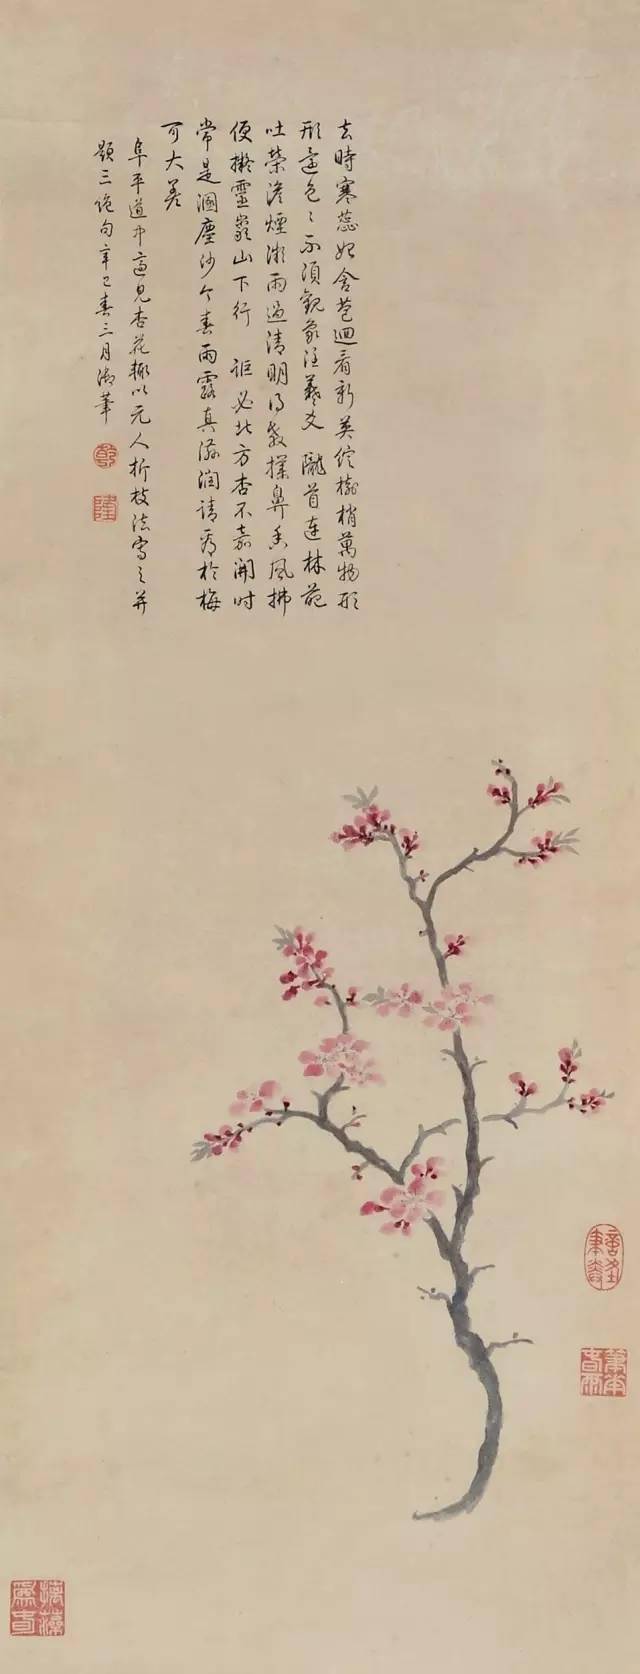 去時寒蕊始含苞迴看新英綻樹梢萬物形
形還色々不須觀象注羲爻 隴首連林葩
吐榮澹煙微雨過清明得教撲鼻香風拂
便擬靈巖山下行 詎必北方杏不嘉開時
常是溷塵沙今春雨露真滋潤請看於梅
可大差
阜平道中見杏花輒以元人折枝法寫之并
題三絕句辛巳春三月御筆
乾
隆
摛藻為春